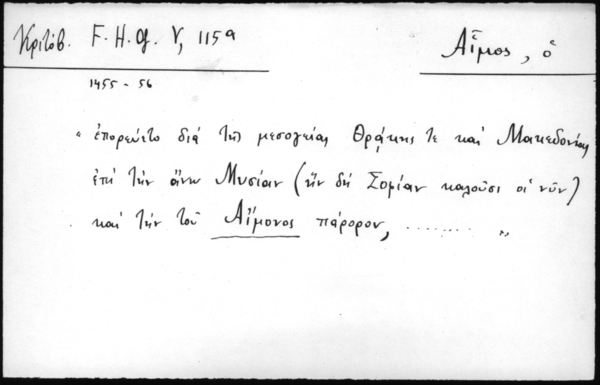 Κριτόβ. F. H. G. V, 115α
Αἷμος, ὁ
1455 - 56
" ἐπορεύετο διά τῆς μεσογείας Θράκης τε καί Μακεδονίας
ἐπί τήν ἄνω Μυσίαν (ἥν δή Σομίαν καλοῦσι οἱ νῦν)
καί τήν τοῦ Αἵμονος πάρορον, ........ "